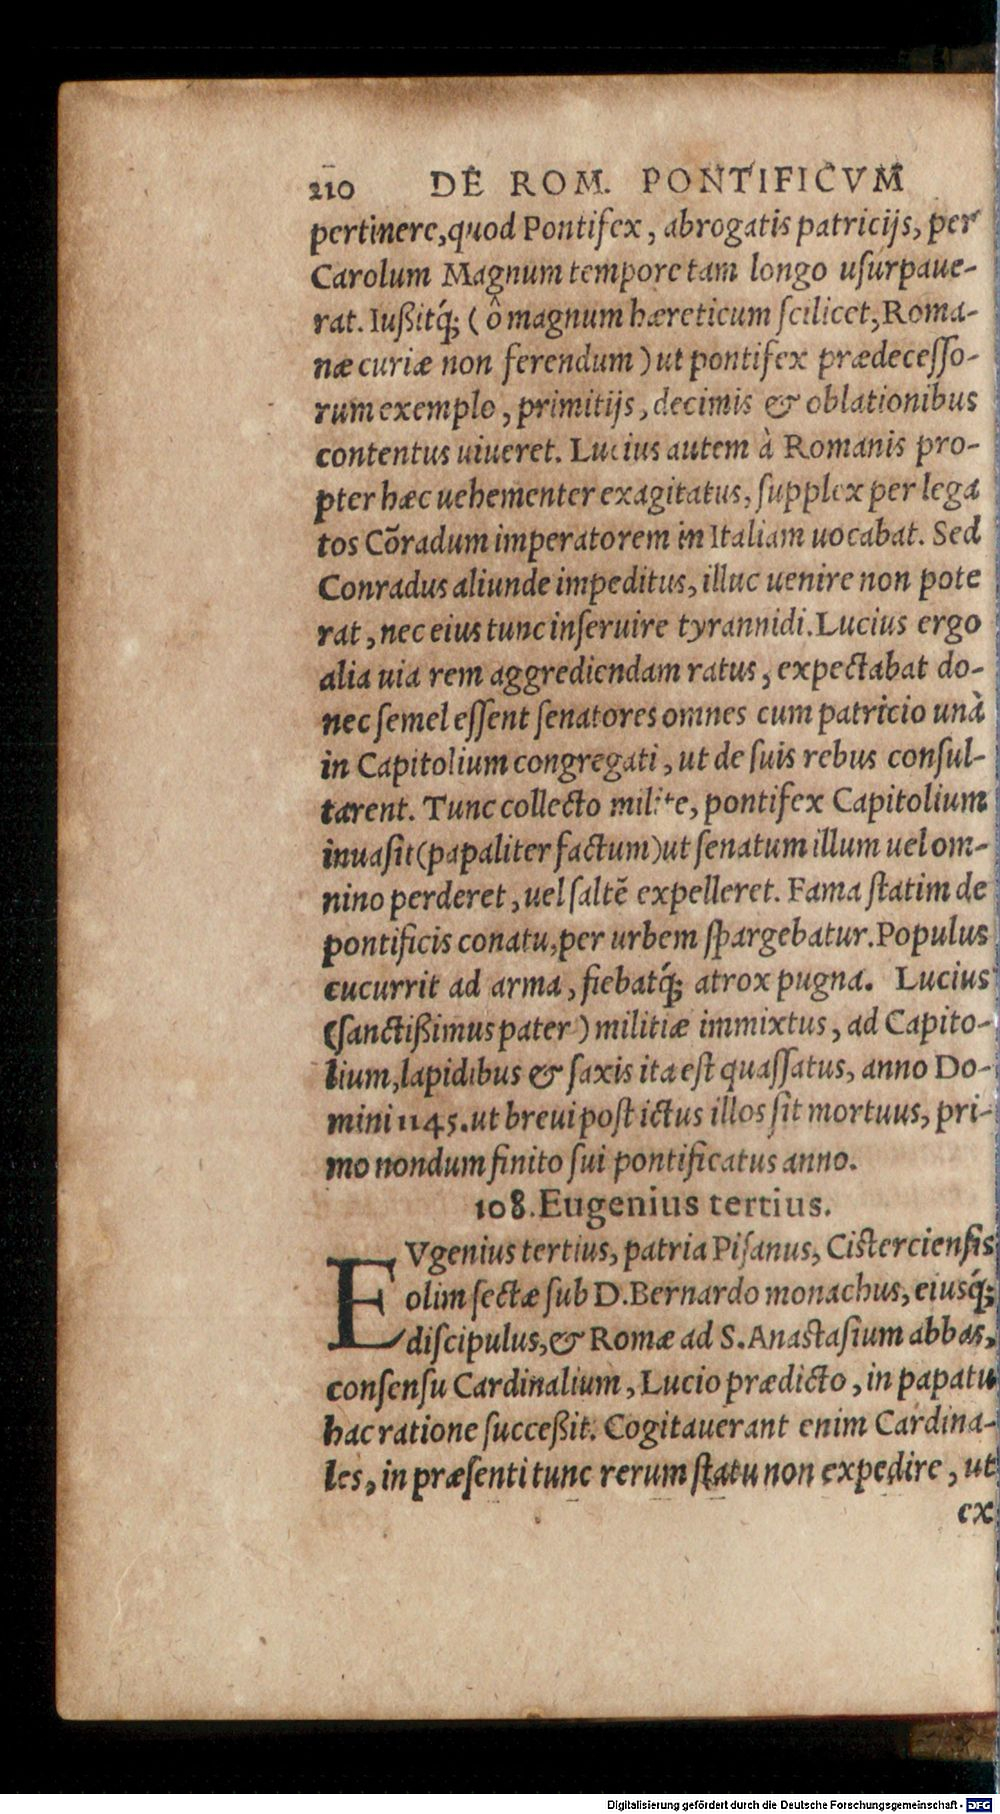 210 DE ROM. PONTIFICVM
pertinere, quod Pontifex, abrogatis patricijs, per
Carolum Magnum tempore tam longo uſurpaue-
rat. Iußitq́; (ô magnum hæreticum ſcilicet, Roma-
næ curiæ non ferendum) ut pontifex prædeceſſo-
rum exemplo, primitijs, decimis & oblationibus
contentus uiueret. Lucius autem à Romanis pro-
pter hæc uehementer exagitatus, ſupplex per lega
tos Cõradum imperatorem in Italiam uocabat. Sed
Conradus aliunde impeditus, illuc uenire non pote
rat, nec eius tunc inſeruire tyrannidi. Lucius ergo
alia uia rem aggrediendam ratus, expectabat do-
nec ſemel eſſent ſenatores omnes cum patricio unà
in Capitolium congregati, ut de ſuis rebus conſul-
tarent. Tunc collecto milite, pontifex Capitolium
inuaſit (papaliter factum) ut ſenatum illum uel om-
nino perderet, uel ſaltẽ expelleret. Fama ſtatim de
pontificis conatu, per urbem ſpargebatur. Populus
cucurrit ad arma, fiebatq́; atrox pugna. Lucius
(ſanctißimus pater) militiæ immixtus, ad Capito-
lium, lapidibus & ſaxis ita eſt quaſſatus, anno Do-
mini 1145. ut breui poſt ictus illos ſit mortuus, pri-
mo nondum finito ſui pontificatus anno.
108. Eugenius tertius.
EVgenius tertius, patria Piſanus, Ciſtercienſis
olim ſectæ ſub D. Bernardo monachus, eiusq́;
diſcipulus, & Romæ ad S. Anaſtaſium abbas,
conſenſu Cardinalium, Lucio prædicto, in papatu
hac ratione ſucceßit. Cogitauerant enim Cardina-
les, in præſenti tunc rerum ſtatu non expedire, ut
ex
Digitalisierung gefördert durch die Deutsche Forschungsgemeinschaft - DFG